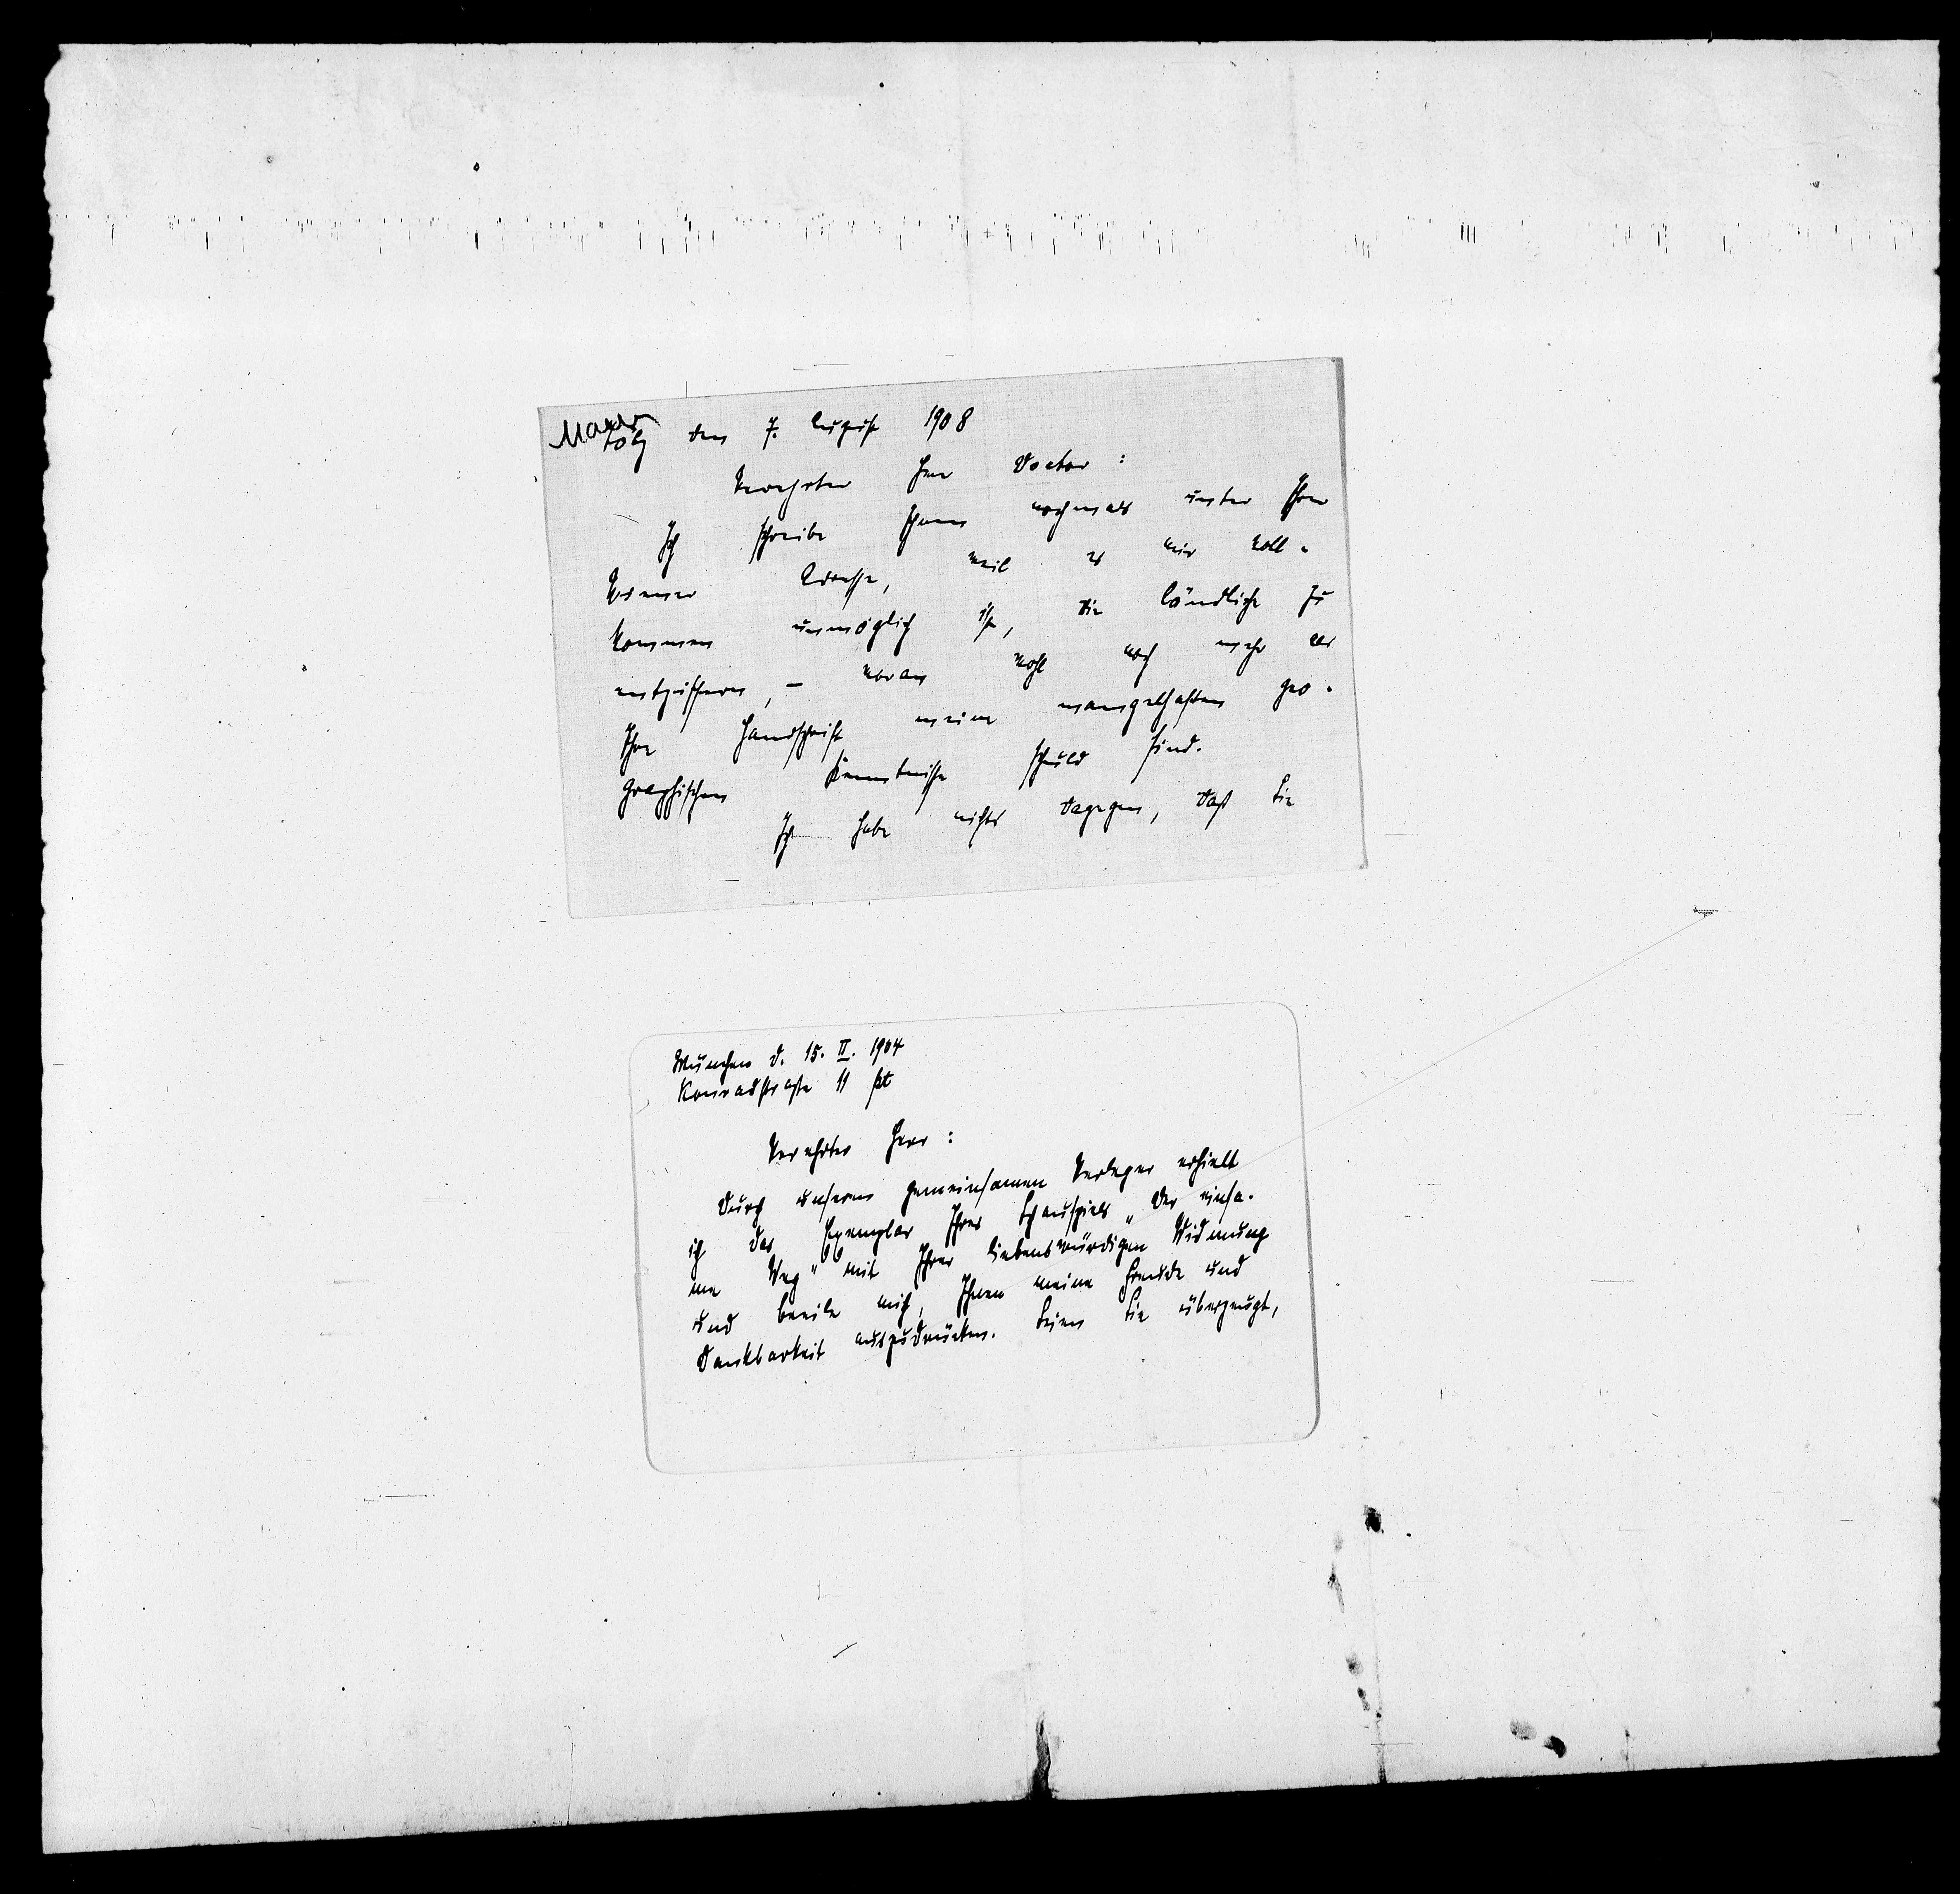 Mann
Tölz den 7. August 1908
Verehrter Herr Doctor:
Ich schreibe Ihnen nochmals unter Ihrer
Wiener Adresse, weil es mir voll-
kommen unmöglich ist, die ländliche zu
entziffern, – woran wohl noch mehr als
Ihre Handschrift meine mangelhaften geo-
graphischen Kenntnisse schuld sind.
Ich habe nichts dagegen, daß Sie
München d. 15. II. 1904
Konradstraße 11 pt
Verehrter Herr:
Durch unseren gemeinsamen Verleger erhielt
ich das Exemplar Ihres Schauspiels „Der einsa-
me Weg" mit Ihrer liebenswürdigen Widmung
und beeile mich, Ihnen meine Freude und
Dankbarkeit auszudrücken. Seien Sie überzeugt,